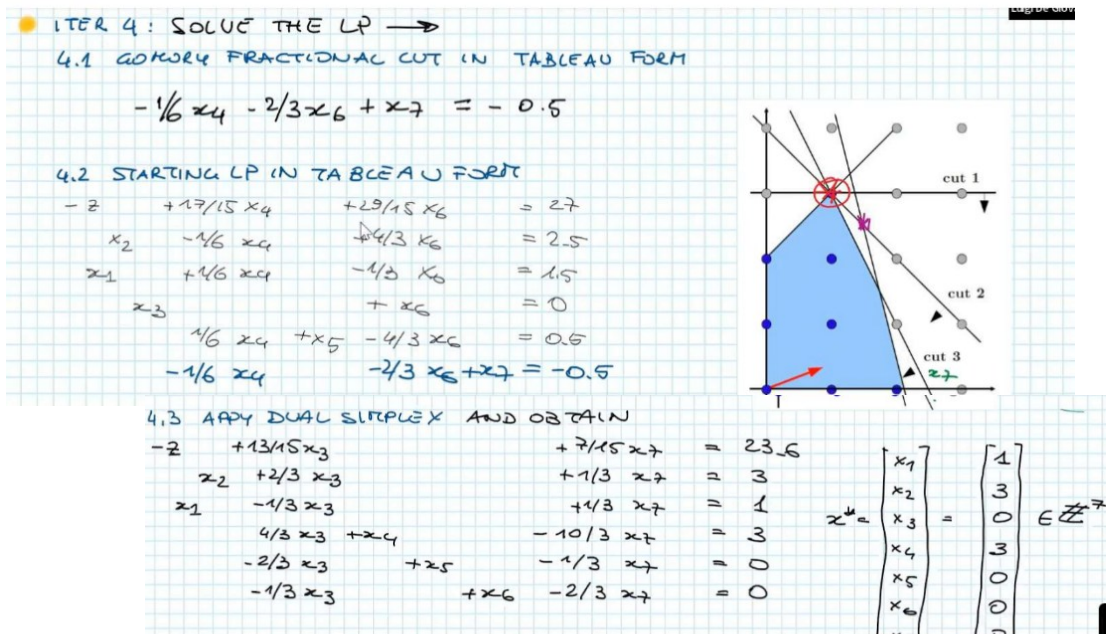 Luigi De Giov
ITER 4: SOLVE THE LP →
4.1 GOMORY FRACTIONAL CUT IN TABLEAU FORM
-1/6 x4 - 2/3 x6 + x7 = - 0.5
4.2 STARTING LP IN TABLEAU FORM
-z +17/15 x4 +29/15 x6 = 27
x2 -1/6 x4 +4/3 x6 = 2.5
x1 +1/6 x4 -1/3 x6 = 1.5
x3 + x6 = 0
1/6 x4 +x5 -4/3 x6 = 0.5
-1/6 x4 -2/3 x6 +x7 = -0.5
cut 1
cut 2
cut 3
x7
4.3 APPY DUAL SIMPLEX AND OBTAIN
-z +13/15 x3 +7/15 x7 = 23.6
x2 +2/3 x3 +1/3 x7 = 3
x1 -1/3 x3 +1/3 x7 = 1
4/3 x3 +x4 -10/3 x7 = 3
-2/3 x3 +x5 -1/3 x7 = 0
-1/3 x3 +x6 -2/3 x7 = 0
x* = [x1 x2 x3 x4 x5 x6 = [1 3 0 3 0 0 ∈ ℤ^7